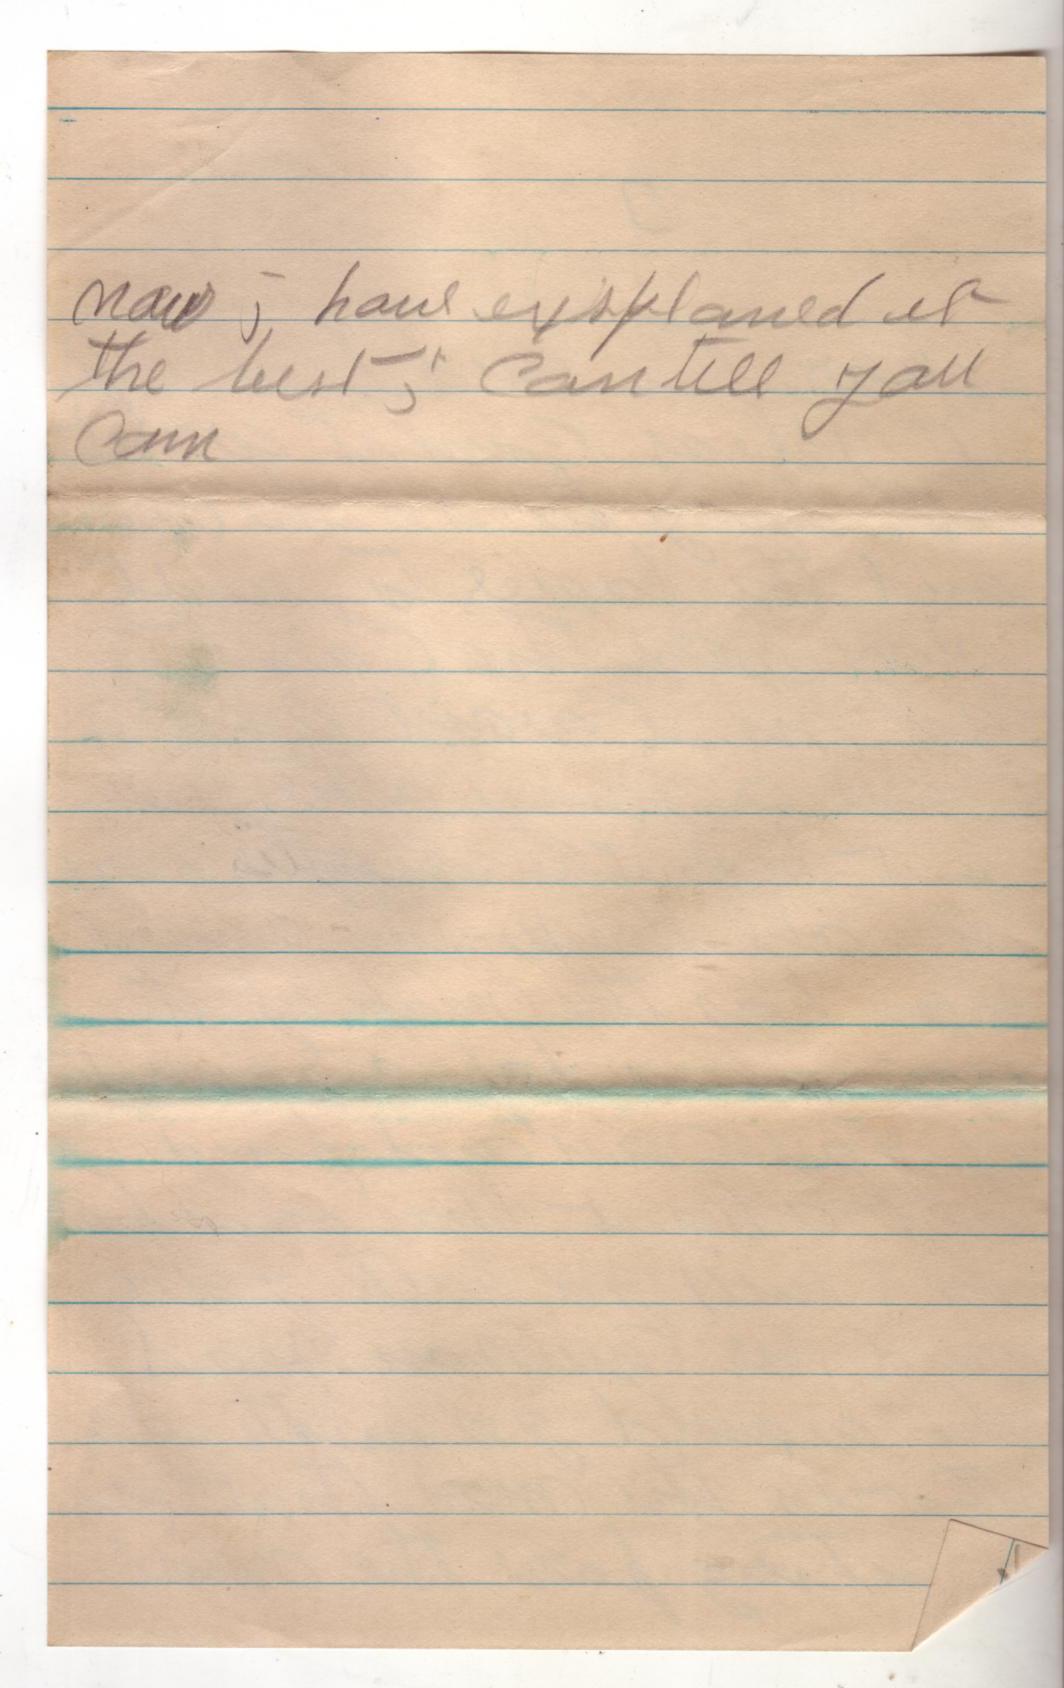 now i have explaned it
the best i can till you
Com